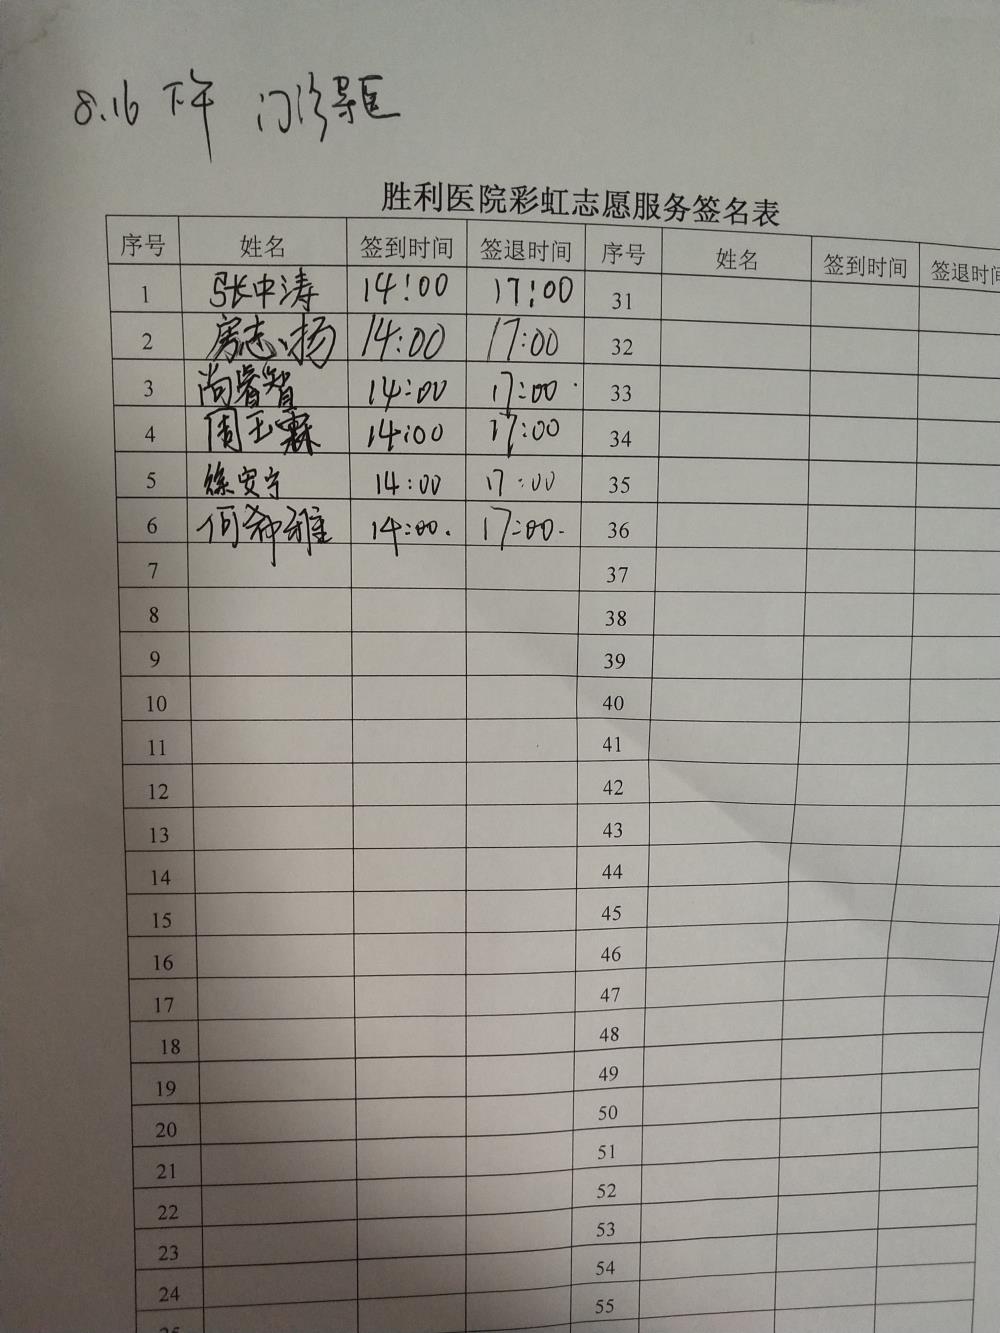 8.16 下午 门诊导医
胜利医院彩虹志愿服务签名表
序号 姓名 签到时间 签退时间 序号 姓名 签到时间 签退时间
1 张中涛 14:00 17:00 31
2 房志扬 14:00 17:00 32
3 尚睿智 14:00 17:00 33
4 周玉霖 14:00 17:00 34
5 徐安宁 14:00 17:00 35
6 何希雅 14:00. 17:00. 36
7 37
8 38
9 39
10 40
11 41
12 42
13 43
14 44
15 45
16 46
17 47
18 48
19 49
20 50
21 51
22 52
23 53
24 54
25 55